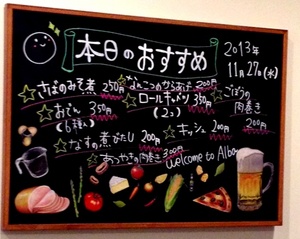 本日のおすすめ
2013年
11月27日(水)
さばのみそ煮 250円
なんこつのからあげ 200円
おでん 350円
(6種入)
ロールキャベツ 350円
(2コ)
ごぼうの
肉巻き
200円
なすの煮びたし 200円
キッシュ 200円
あつやきの肉巻き 300円
welcome to Alba